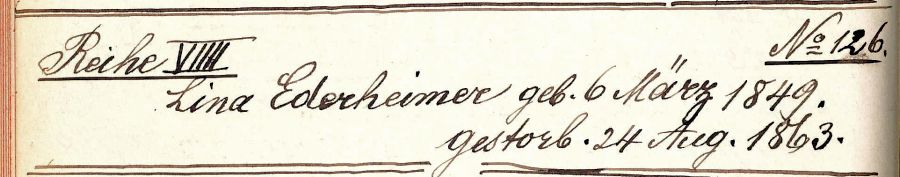 Reihe VIIII № 126.
Lina Ederheimer geb. 6 März 1849.
gestorb. 24 Aug. 1863.